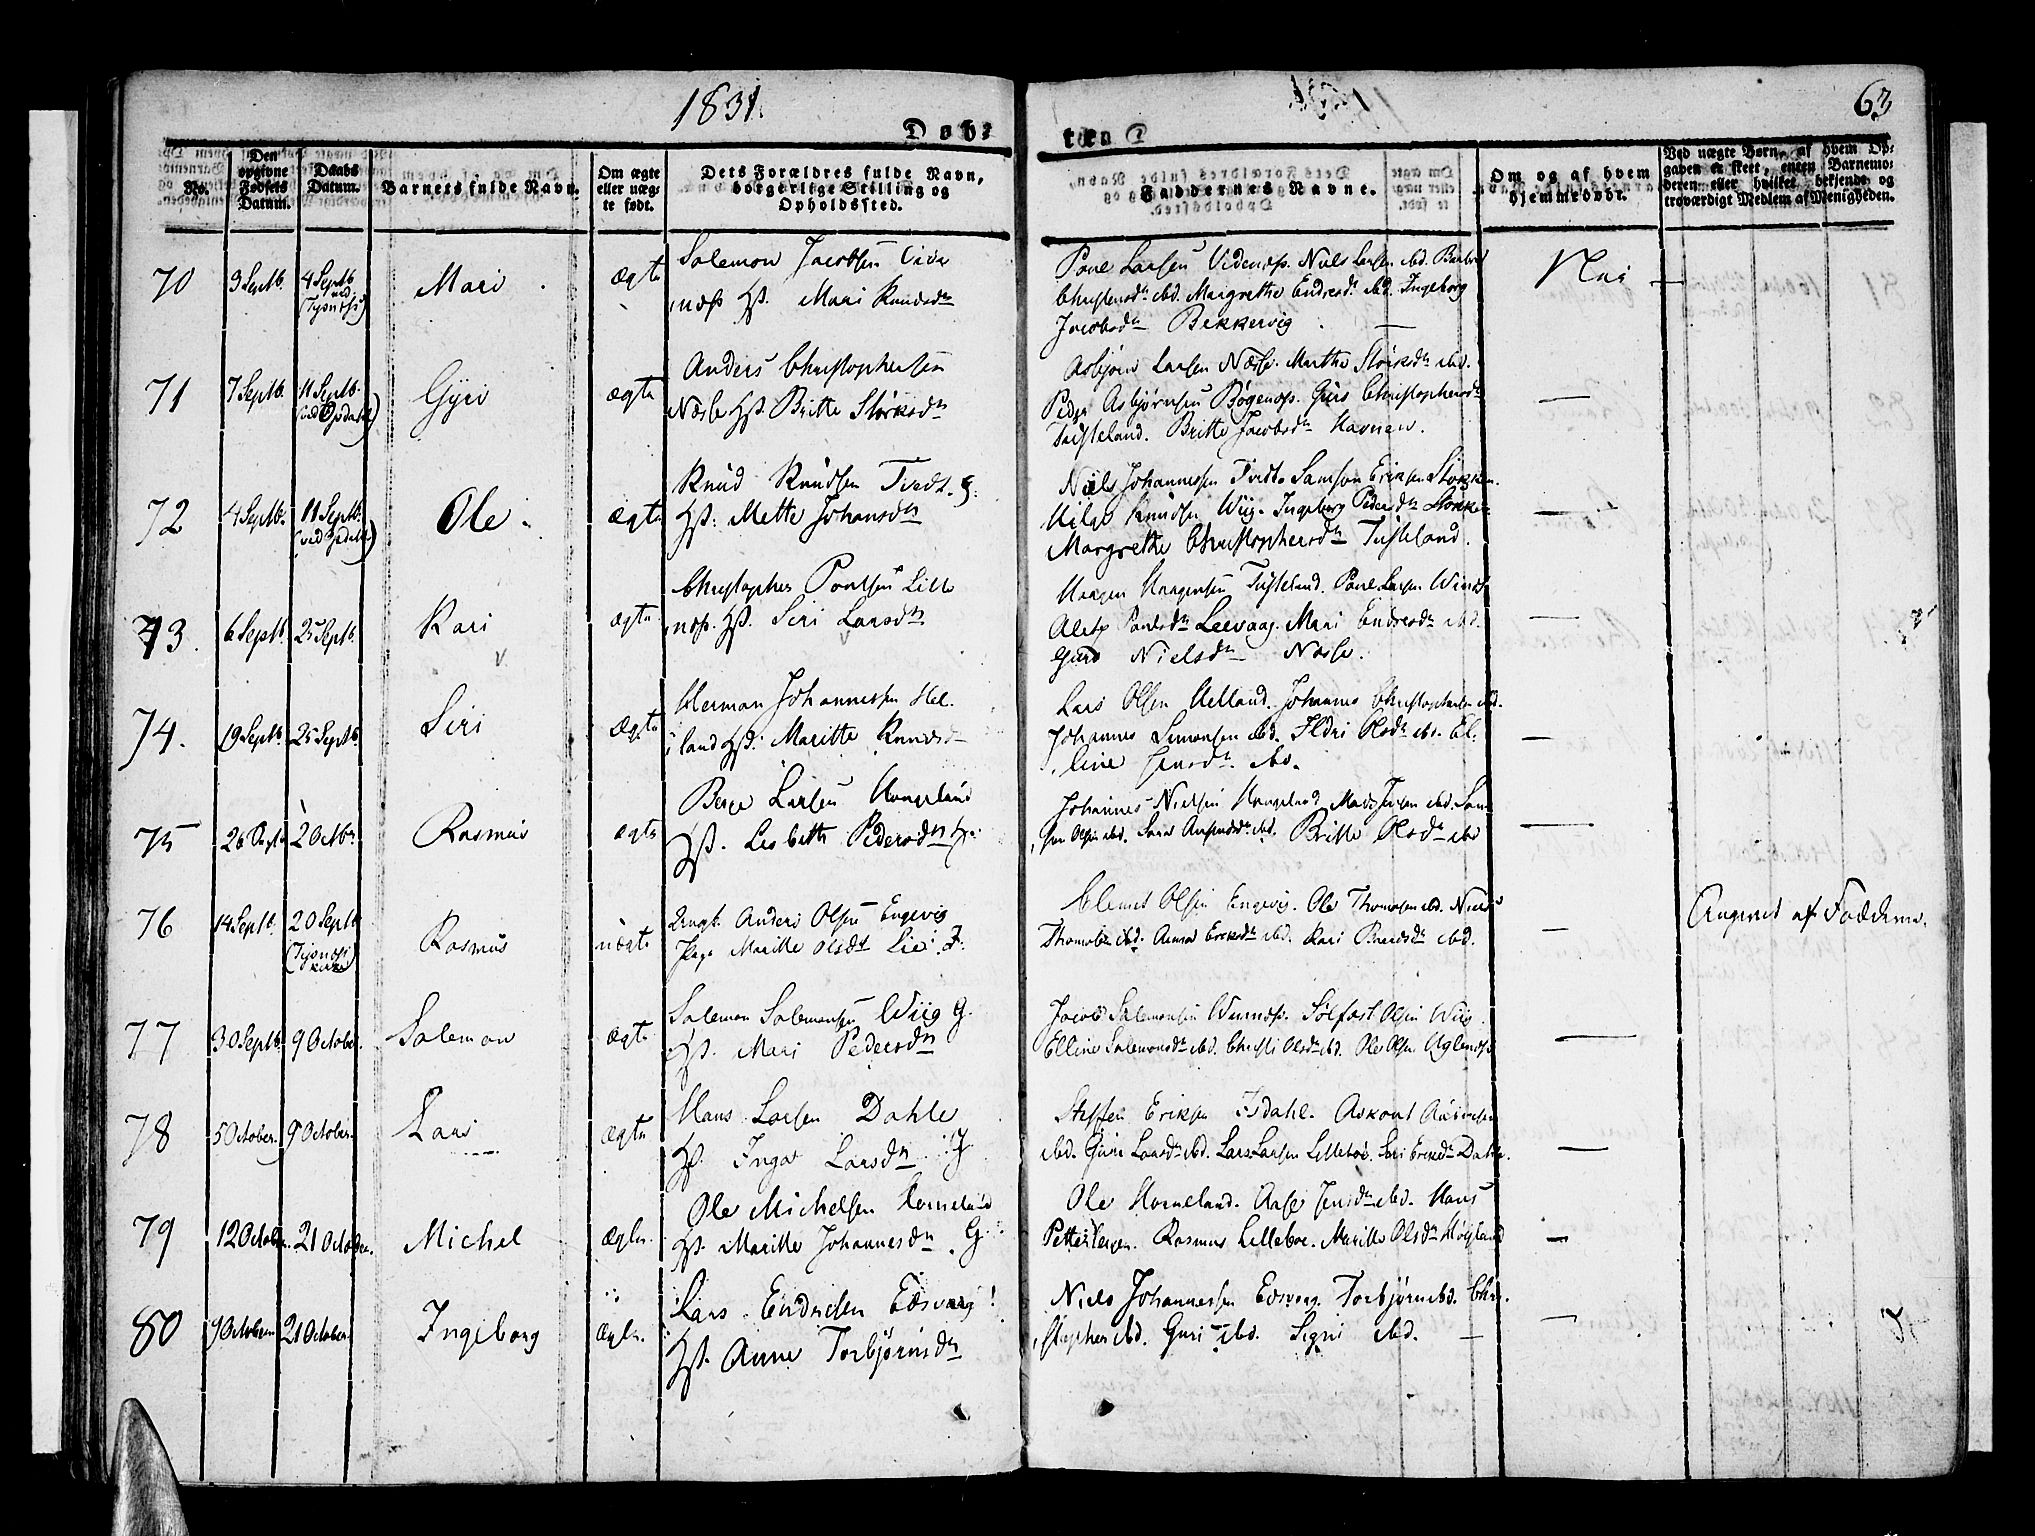 1831.
63
Døb-
te.
No.
Den
opgivne
Fødsels
Datum.
Daabs
Datum.
Barnets fulde Navn.
Om ægte
eller uæg-
te født.
Dets Forældres fulde Navn,
borgerlige Stilling og
Opholdssted.
Faddernes Navne.
Om og af hvem
hjemmedøbt.
Ved uægte Børn, af hvem Op-
gaven er skeet, enten Barnemo-
deren eller hvilket bekjendt og
troværdigt Medlem af Menigheden.
70
3 Septb.
4 Septb.
Mari
ægte
Salemon Jacobsen
Mari Knudsdtr
Poul Larsen Vidnæs. Niels Larsen ibd. Barbro
Christensdtr ibd. Margrethe Endresdtr ibd. Ingeborg
Jacobsdtr Bekkervig
Nei
71
7 Septb.
11 Septb.
(ved Opdahl)
Gyri
ægte
Anders Christophersen
Næsse Hst. Britte Størksdtr
Asbjørn Larsen Næsse. Marthe Størksdtr ibd.
Peder Asbjørnsen Bøgenæs. Guro Christophersdtr
Tufteland. Britte Jacobsdtr Havnen.
72
4 Septb.
11 Septb.
(ved Opdahl)
Ole.
ægte
Knud Knudsen Tvedt. G:
Hst: Mette Johansdtr
Niels Johannessen Tvedt. Samson Eriksen Stokken.
Helge Knudsen Wiig. Ingeborg Pedersdtr Stokken
Margrethe Christophersdtr Tufteland.
73.
6 Septb.
25 Septb.
Kari
ægte
Christopher Poulsen Lille
næs. Hst. Siri Larsdtr
Haagen Haagensen Tufteland. Poul Larsen
Poulsdtr Leevaag. Mari Endresdtr ibd.
Guro Nielsdtr Næsse.
74.
19 Septb.
25 Septb.
Siri
ægte
Herman Johannessen Hel-
land Hst. Maritte Knudsdtr
Lars Olsen Helland. Johannes Christophersen ibd.
Johannes Simonsen ibd. Ildri Olsdtr ibd. El-
line Jensdtr ibd.
75
26 Septb
2 Octbr.
Rasmus
ægte
Børge Larsen Haageland
Hst. Lisbeth Pedersdtr
Johannes Nielsen Haageland Mads Jensen ibd.
Olsen ibd. ibd. Britte Olsdtr ibd
76
14 Septb.
20 Septb
(Tysnæs
Kirke)
Rasmus
uægte
Ungk. Anders Olsen Engevig
Pige Maritte Olsdtr Lie:
Clemet Olsen Engevig. Ole Thomesen ibd. Niels
Thomesen ibd. Anna Eriksdtr ibd. Kari ibd.
Angivet af Fadderne.
77
30 Septb.
9 October.
Salemon
ægte
Salemon Salemonsen Wiig G.
Hst. Mari Pedersdtr
Jacob Salemonsen Sølfast Olsen Wiig
Elline Salemonsdtr ibd. Christi Olsdtr ibd. Ole Olsen
78
5 October.
9 October.
Lars
ægte
Hans Larsen Dahle
Hst. Inga Larsdtr
Steffen Eriksen Isdahl.
ibd. Guri Larsdtr ibd. Lars Larsen Lillebøe. Siri Eriksdtr Dahle.
79
12 October.
21 October.
Michel
ægte.
Ole Michelsen Horneland
Hst. Maritte Johannesdtr G
Ole Horneland. Aase Jensdtr ibd. Hans
Petterteigen. Rasmus Lilleboe. Maritte Olsdtr Høgland
80
9 October
21 October.
Ingeborg
ægte.
Lars Endresen Edsvaag
Hst. Anne Torbjørnsdtr
Niels Johannessen Edsvaag. Torbjørn ibd. Chri-
stopher ibd. Guri ibd. Signi ibd.